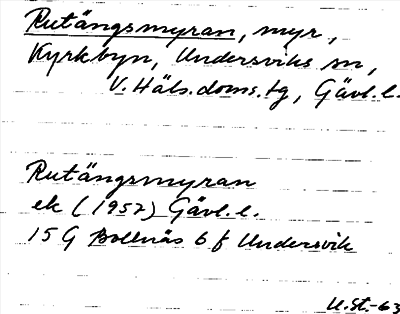 Rutängsmyran, myr,
Kyrkbyn, Undersviks sn,
V. Häls. doms. tg, Gävl. l.
Rutängsmyran
ek (1957) Gävl. l.
15 G Bollnäs 6 f Undersvik
U.St.-63